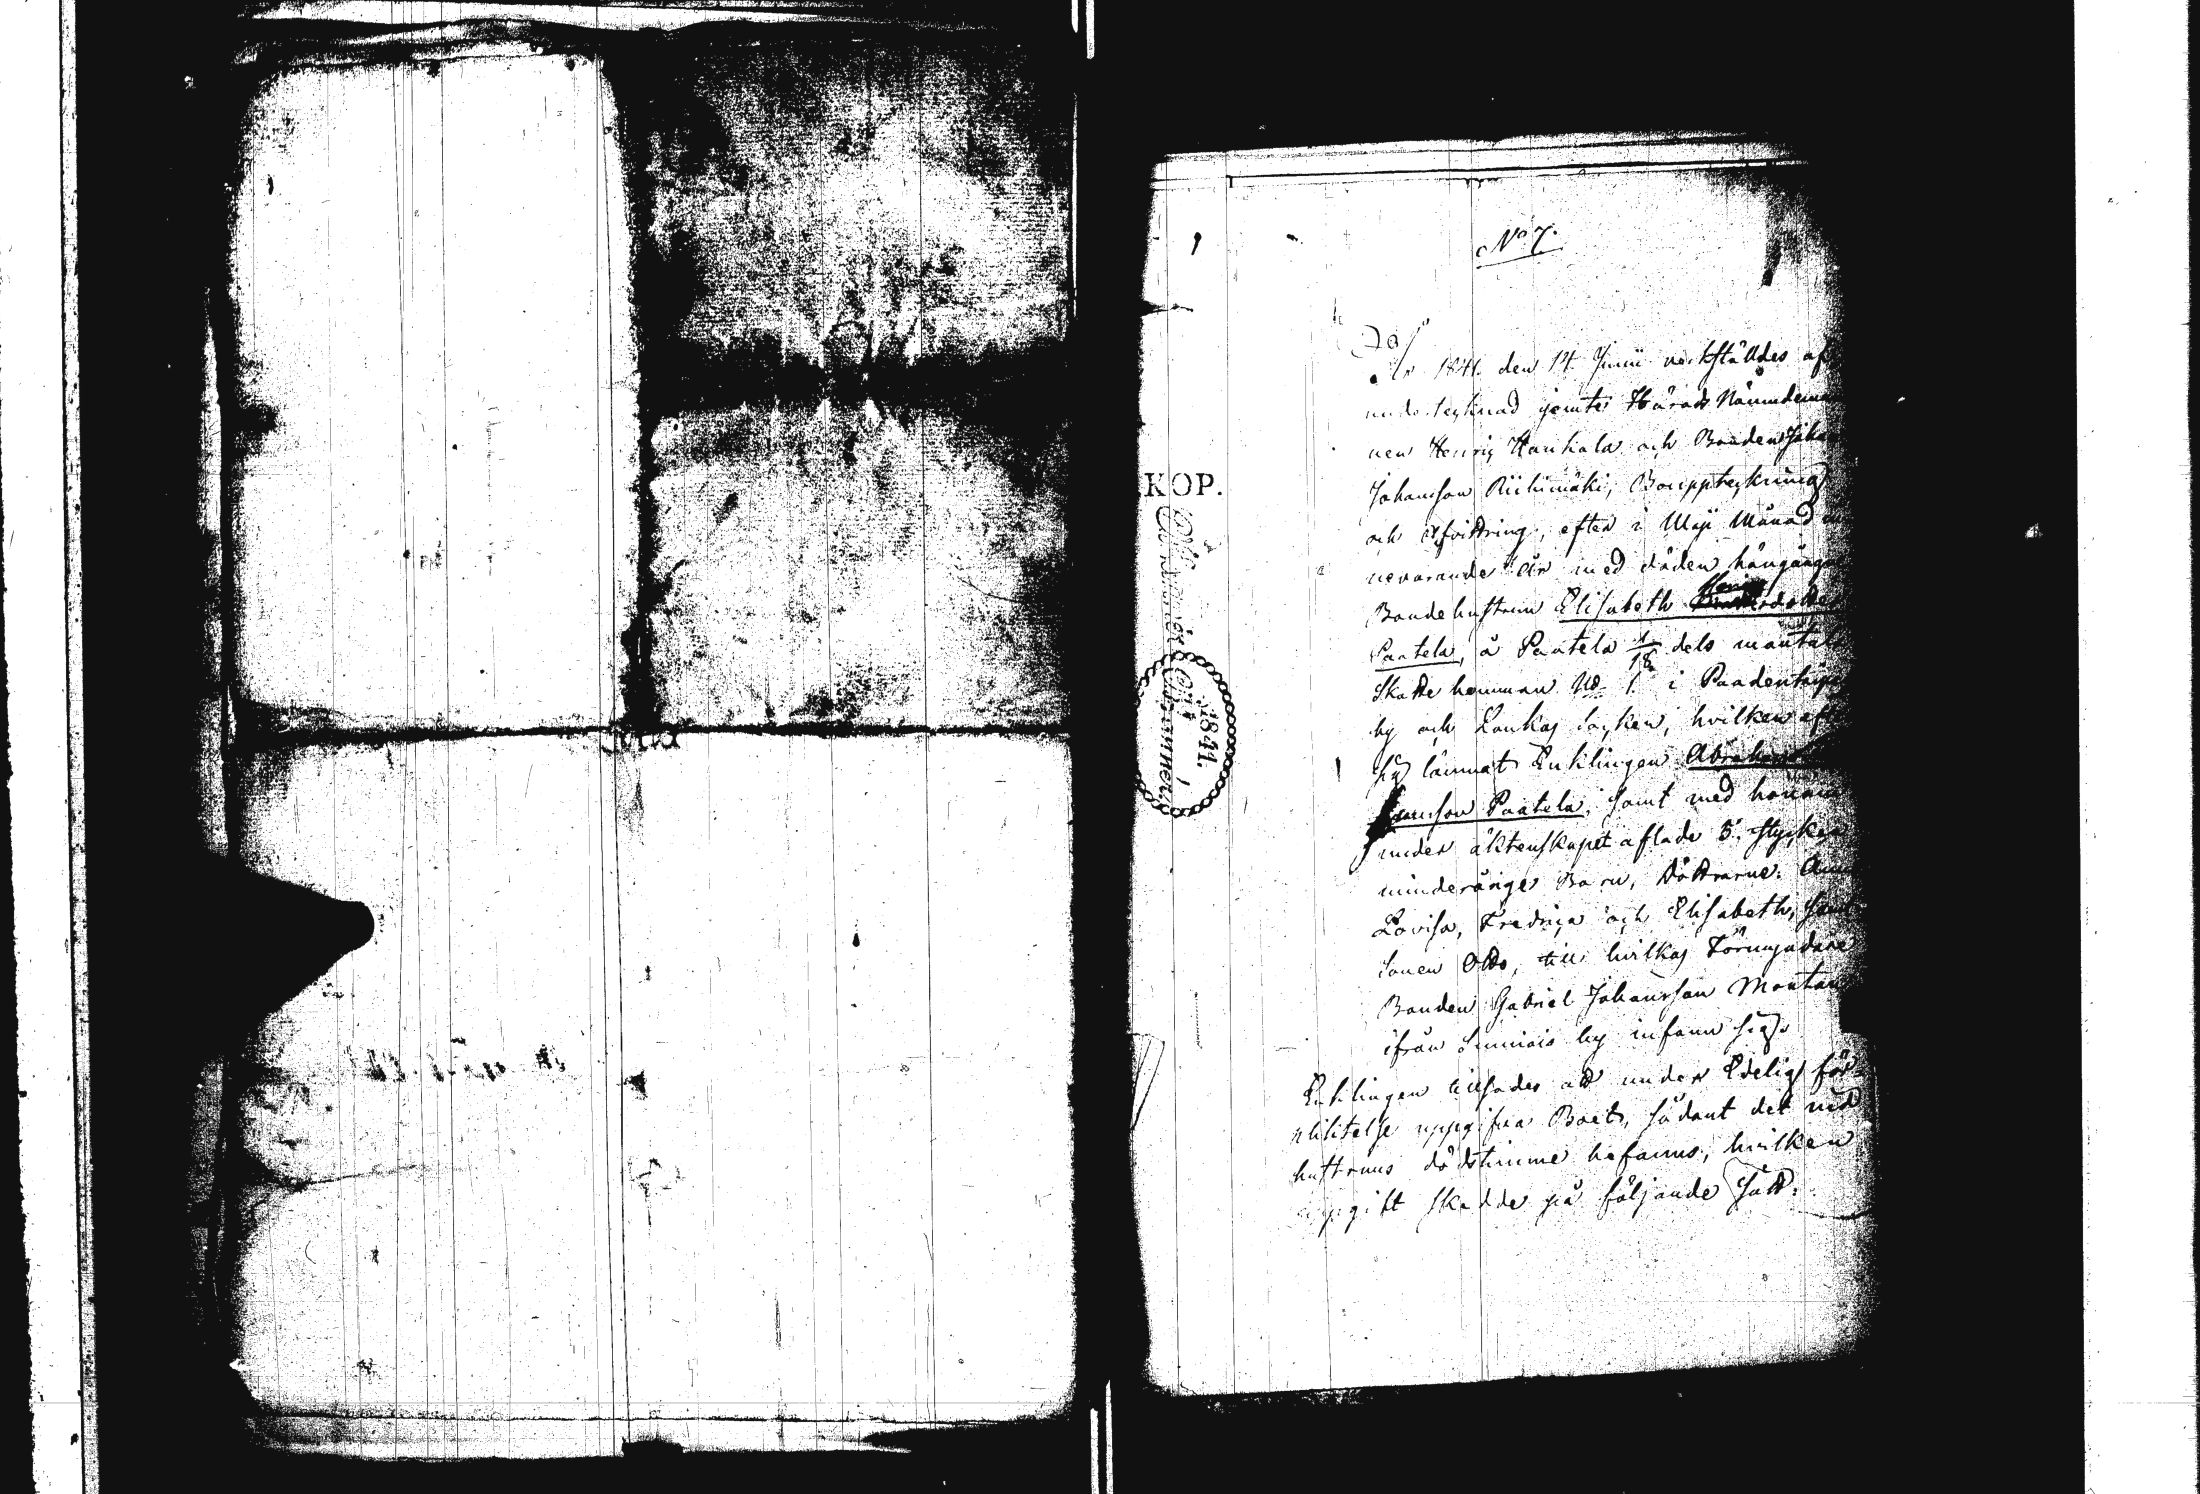 No 7.
År 1841 den 14 Junii verkställdes af
undertecknad jemte Härads Nämndeman
nen Henric Hanhala och Bonden Johan
Johansson Riihimäki, Bouppteckning
och afvittring, efter i Maji Månad in
nevarande år med döden hängångna
Bondehustrun Elisabeth Henricsdotter
Paatela, å Paatela 1/18 dels mantals
Skatte hemman No 1 i Paadentaipal
by och socken, hvilken efter
sig lämnat Enklingen Abraham
Paatela, samt med honom
under äktenskapet aflade 5 stycken
minderårige Barn, Döttrarne: Anna
Lovisa, Fredrica och Elisabeth, samt
Sonen Otto, till hvilkas Förmyndare
Bonden Gabriel Johansson
ifrån by infann sig.
Enklingen tillsades att under Edelig för-
pliktelse uppgifva Boet, sådant det vid
hustruns dödstimme befanns, hvilken
uppgift skedde på följande sätt:
KOP.
1841.